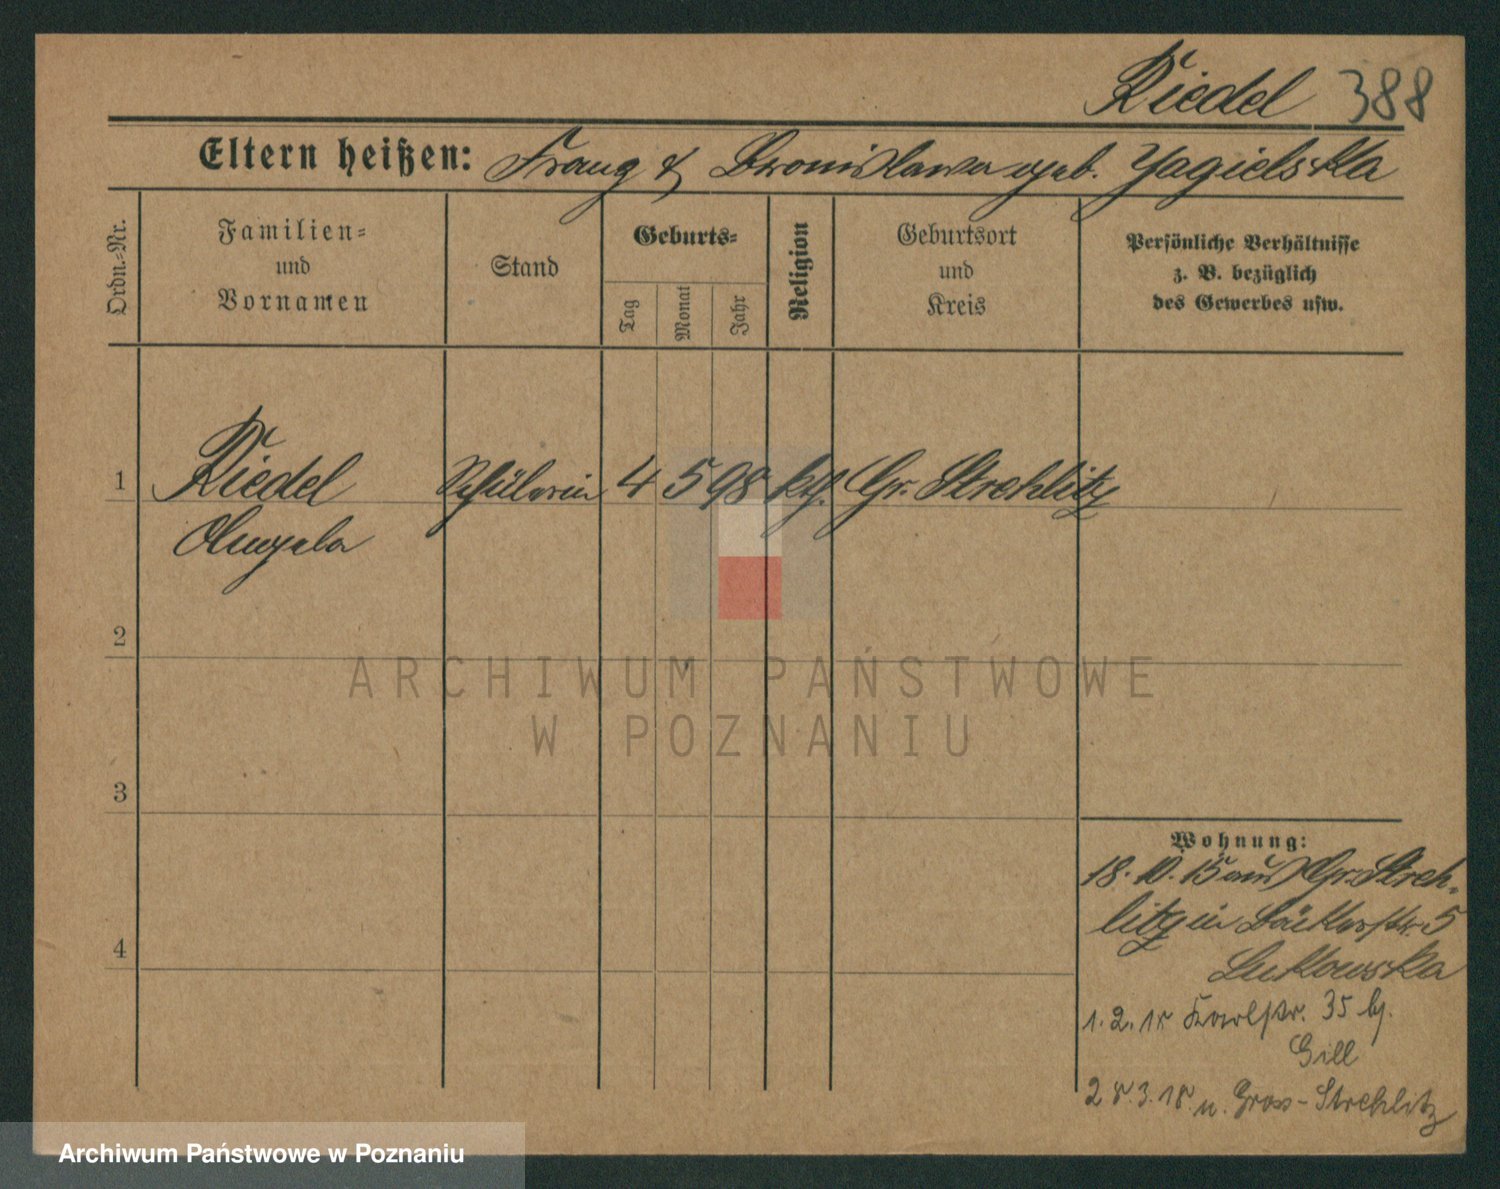 Riedel 388
Eltern heißen: Franz & Bronislawa geb. Jagielska
Ordn.-Nr.
Familien-
und
Vornamen
Stand
Geburts-
Tag
Monat
Jahr
Religion
Geburtsort
und
Kreis
Persönliche Verhältnisse
z. B. bezüglich
des Gewerbes usw.
1 Riedel Schülerin 4 5 98 kth. Gr. Strehlitz
Angela
2
3
4
Wohnung:
18. 10. 15 aus Gr. Streh-
litz in Bäckerstr. 5
Lutkowska
1. 2. 18 Karlstr. 35 bj.
Gill
28. 3. 18. n. Gross-Strehlitz
ARCHIWUM PAŃSTWOWE
W POZNANIU
Archiwum Państwowe w Poznaniu